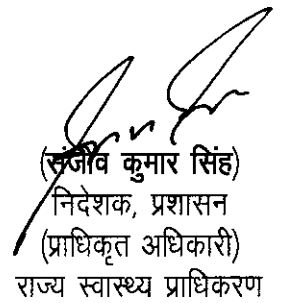 (संजीव कुमार सिंह)
निदेशक, प्रशासन
(प्राधिकृत अधिकारी)
राज्य स्वास्थ्य प्राधिकरण